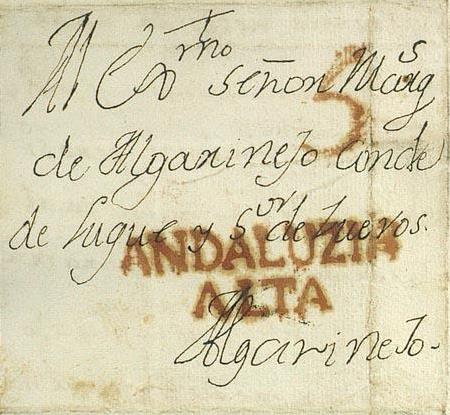 Al Exmo señor Marqs
5
de Algarinejo Conde
de Luque y Sor de Zueros.
ANDALUZIA
ALTA
Algarinejo.